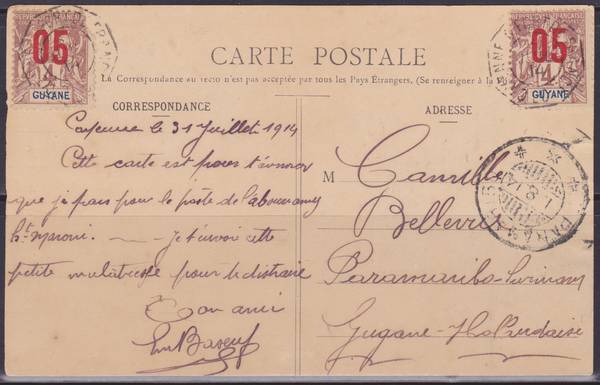 RÉPUBLIQUE FRANÇAISE
05
GUYANE
RÉPUBLIQUE FRANÇAISE
05
GUYANE
CARTE POSTALE
La Correspondance au recto n'est pas acceptée par tous les Pays Étrangers, (Se renseigner à la
CORRESPONDANCE
Cayenne le 31 Juillet 1914
Cette carte est pour t'annoncer
que je pars pour le poste de
Ht Maroni. Je t'envoi cette
petite mulatresse pour te distraire
Ton ami
ADRESSE
M Camille
Paramaribo-Surinam
Guyane-Hollandaise
PARAMARIBO